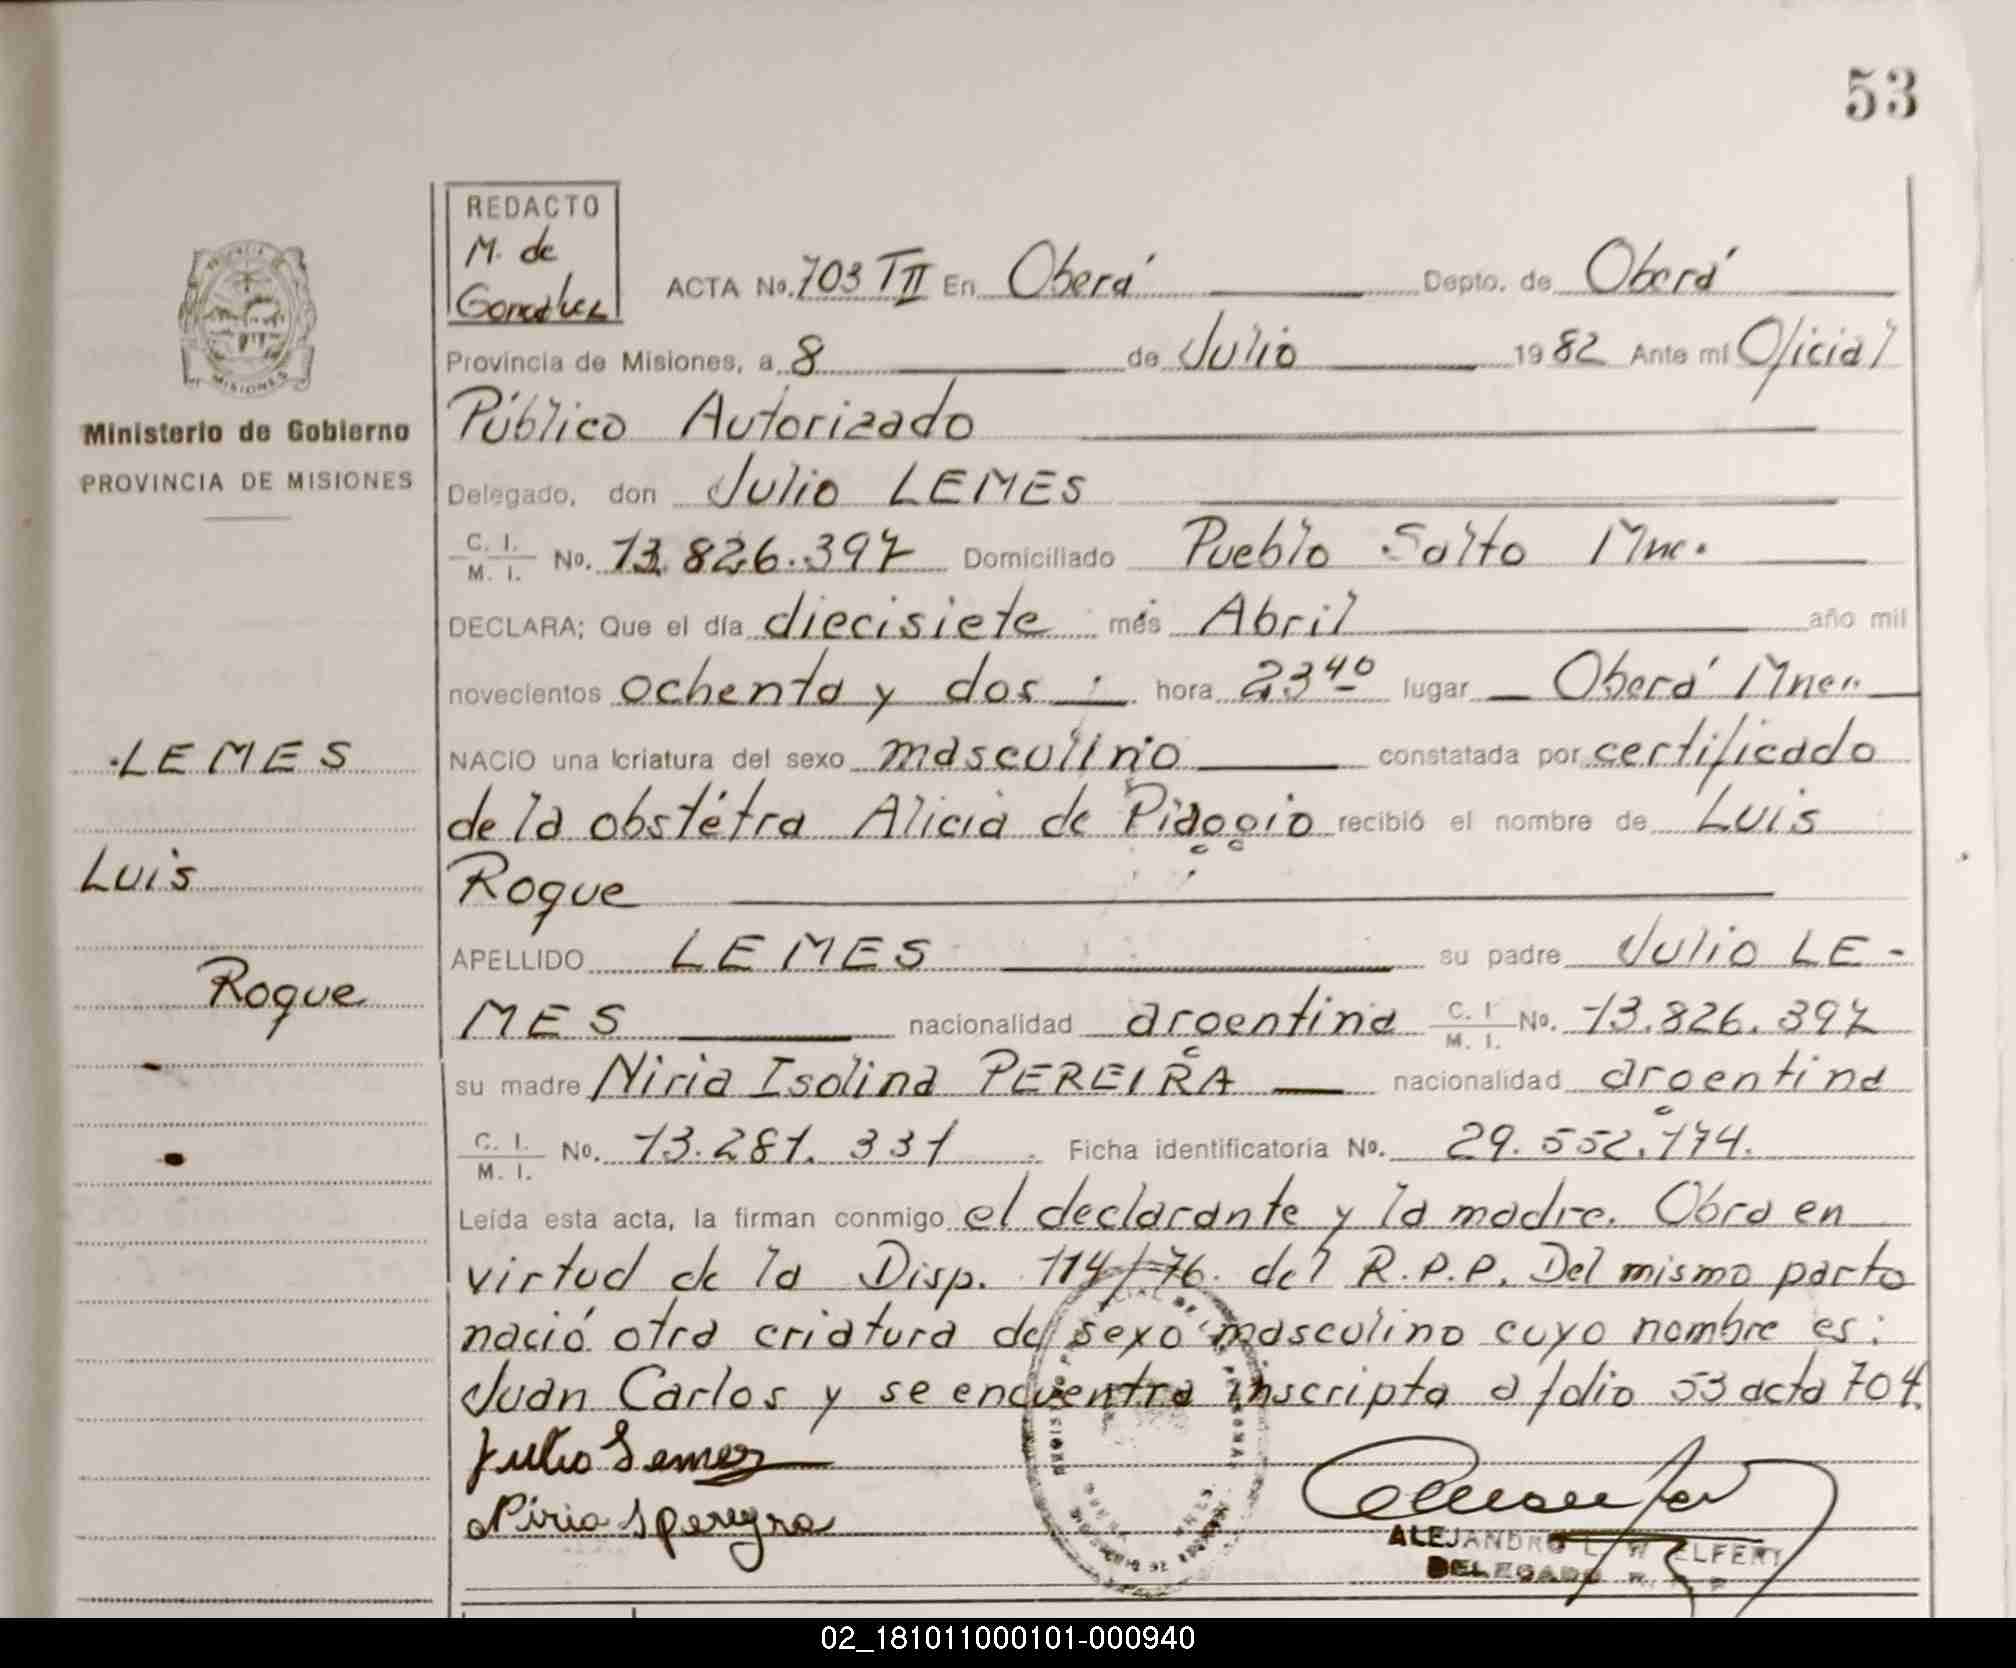 53
REDACTO
M. de
Gonzalez
ACTA No. 703 TII En Oberá Depto. de Oberá
Provincia de Misiones, a 8 de Julio 1982 Ante mí Oficial
Público Autorizado
Ministerio de Gobierno
PROVINCIA DE MISIONES
Delegado, don Julio LEMES
C. I.
M. I. No. 13.826.397 Domiciliado Pueblo Salto Mnc.
DECLARA; Que el día diecisiete més Abril año mil
novecientos ochenta y dos hora 23 40 lugar Oberá Mnes.
LEMES
NACIO una criatura del sexo masculino constatada por certificado
de la obstétra Alicia de Piaggio recibió el nombre de Luis
Luis
Roque
APELLIDO LEMES su padre Julio LE-
Roque
MES nacionalidad argentina C. I
M. I. No. 13.826.397
su madre Niria Isolina PEREIRA nacionalidad argentina
C. I.
M. I. No. 13.281.331 Ficha identificatoria No. 29.552.174.
Leída esta acta, la firman conmigo el declarante y la madre. Obra en
virtud de la Disp. 114/76. del R.P.P. Del mismo parto
nació otra criatura del sexo masculino cuyo nombre es:
Juan Carlos y se encuentra inscripta a folio 53 acta 704.
Julio Lemes
Niria I pereyra
ALEJANDRO
DELEGADO
02_181011000101-000940